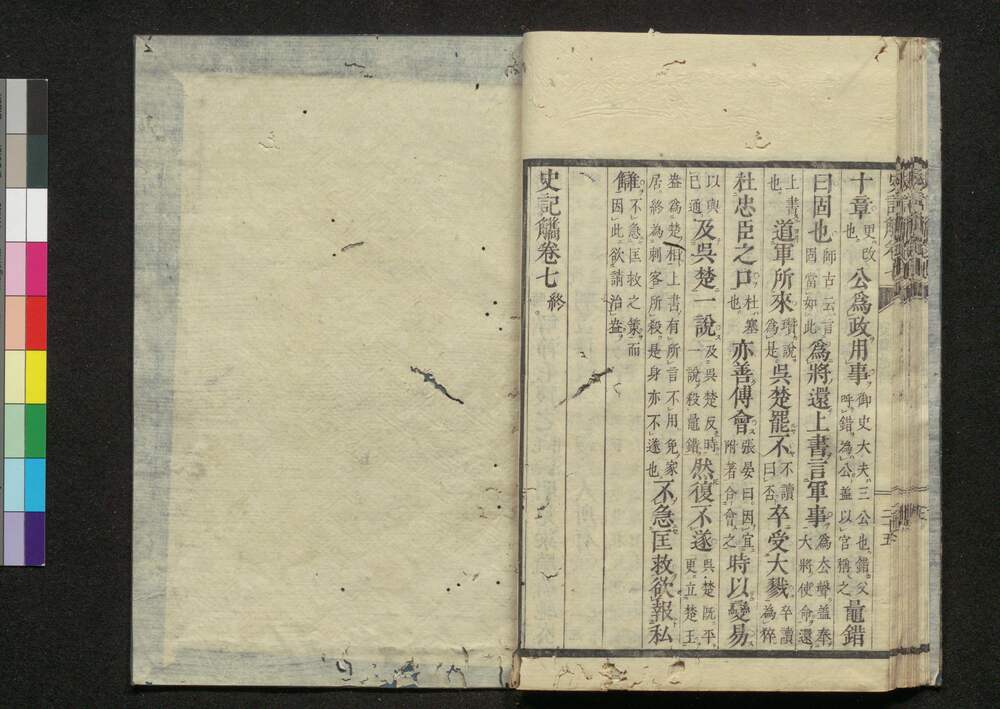 十章更改也公爲政用事御史大夫三公也錯父呼錯為公蓋以官稱之鼂錯
曰固也師古云言固當如此爲將還上書言軍事為去聲蓋奉大將使命還
上書也道軍所來瓚說為是吳楚罷不不讀曰否卒受大戮卒讀為猝
杜忠臣之口杜塞也亦善傅會張晏曰因宜附著合會之時以變易
以與已通及吳楚一說及吳楚反時一說殺鼂錯然復不遂吳楚既平更立楚王
盎為楚相上書有所言不用免家居終為刺客所殺是身亦不遂也不急匡救欲報私
讎不急匡救之策而因此欲請治盎
史記觿卷七終